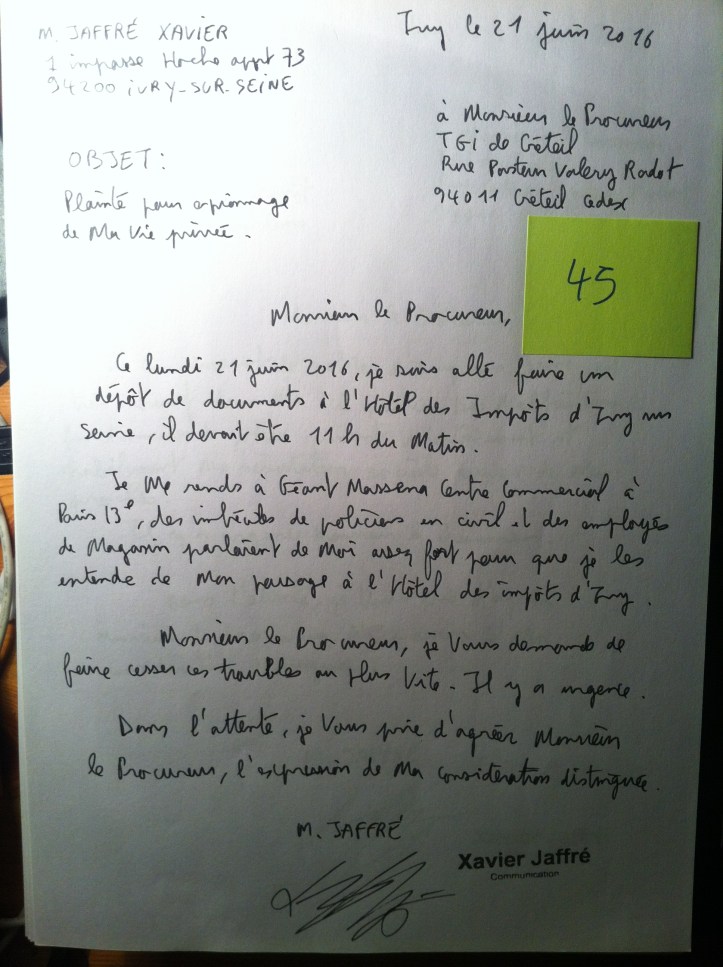 M. JAFFRÉ XAVIER
1 impasse Hoche appt 73
94200 iVRY-SUR-SEiNE
Ivry le 21 juin 2016
à Monsieur le Procureur
TGi de Créteil
Rue Pasteur Valery Radot
94011 Créteil cedex
OBJET :
Plainte pour espionnage
de Ma Vie privée.
45
Monsieur le Procureur,
Ce lundi 21 juin 2016, je suis allé faire un
dépôt de documents à l'Hôtel des Impôts d'Ivry sur
Seine, il devait être 11 h du Matin.
Je Me rends à Géant Massena Centre Commercial à
Paris 13e, des imbéciles de policiers en civil et des employés
de Magasin parlaient de Moi assez fort pour que je les
entende de Mon passage à l'Hôtel des impôts d'Ivry.
Monsieur le Procureur, je Vous demande de
faire cesser ces troubles au plus Vite. Il y a urgence.
Dans l'attente, je Vous prie d'agréer Monsieur
le Procureur, l'expression de Ma considération distinguée.
M. JAFFRÉ
Xavier Jaffré
Communication